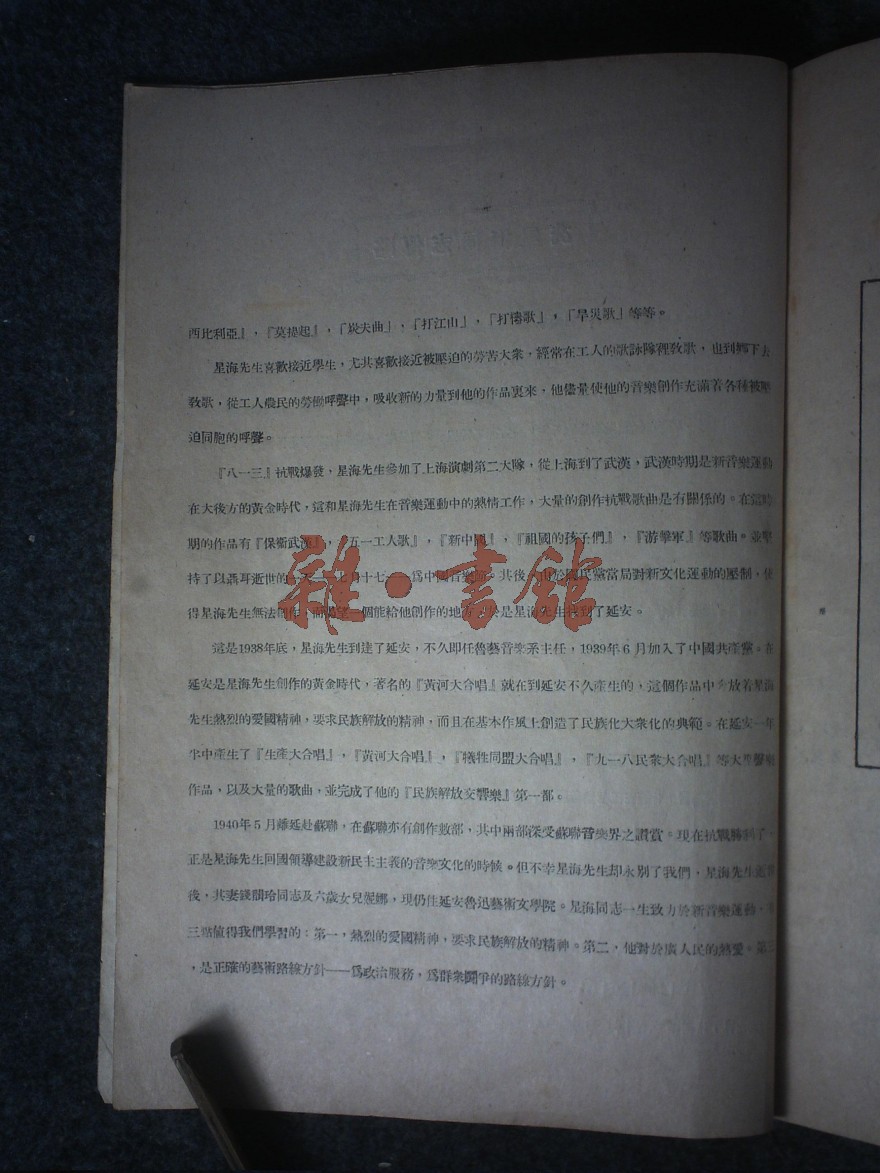 西比利亞』，『莫提起』，「炭夫曲」，「打江山」，「打倦歌」，「旱災歌」等等。
星海先生喜歡接近學生，尤其喜歡接近被壓迫的勞苦大衆．經常在工人的歌詠隊裡敎歌，也到鄉下去
敎歌，從工人農民的勞働呼聲中，吸收新的力量到他的作品裏來．他儘量使他的音樂創作充滿着各種被壓
迫同胞的呼聲。
『八一三』抗戰爆發．星海先生參加了上海演劇第二大隊，從上海到了武漢，武漢時期是新音樂運動
在大後方的黃金時代，這和星海先生在音樂運動中的熱情工作，大量的創作抗戰歌曲是有關係的。在這時
期的作品有『保衞武漢』，『五一工人歌』，『新中國』，『祖國的孩子們』，『游擊軍』等歌曲。並堅
持了以聶耳逝世的一天——七月十七——爲中國音樂節。其後，由於國民黨當局對新文化運動的壓制，使
得星海先生無法創作，而渴望一個能給他創作的地方，於是星海先生找到了延安。
這是1938年底，星海先生到達了延安，不久即任魯藝音樂系主任，1939年6月加入了中國共產黨。在
延安是星海先生創作的黃金時代，著名的『黃河大合唱』就在到延安不久產生的，這個作品中放着星海
先生熱烈的愛國精神，要求民族解放的精神，而且在基本作風上創造了民族化大衆化的典範。在延安一年
半中產生了『生產大合唱』，『黃河大合唱』，『犧牲同盟大合唱』，『九一八民衆大合唱』等大重聲樂
作品，以及大量的歌曲，並完成了他的『民族解放交響樂』第一部。
1940年5月離延赴蘇聯，在蘇聯亦有創作數部，其中兩部深受蘇聯音樂界之讚賞。現在抗戰勝利了，
正是星海先生回國領導建設新民主主義的音樂文化的時候。但不幸星海先生却永別了我們．星海先生逝世
後，其妻錢韻玲同志及六歲女兒妮娜，現仍住延安魯迅藝術文學院。星海同志一生致力於新音樂運動．有
三點值得我們學習的：第一，熱烈的愛國精神，要求民族解放的精神。第二，他對於廣人民的熱愛。第三
，是正確的藝術路線方針——爲政治服務，爲群衆鬪爭的路線方針。
雜·書館